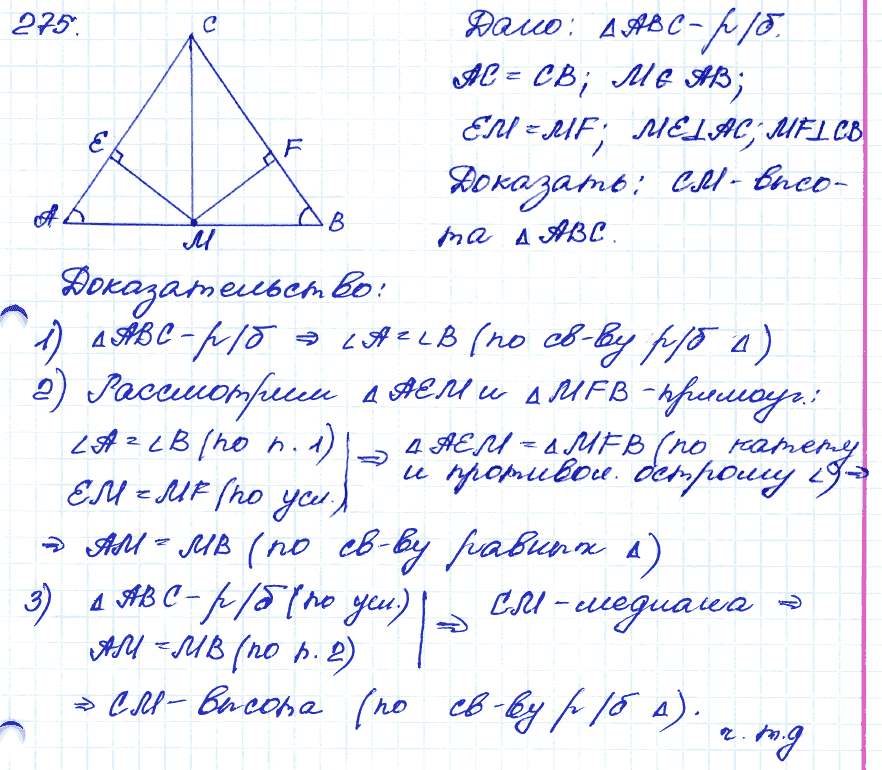 275.
C
E
F
A
M
B
Дано: △ABC – р/б.
AC = CB; M ∈ AB;
EM = MF; ME⊥AC; MF⊥CB
Доказать: CM – высо-
та △ABC.
Доказательство:
1) △ABC – р/б ⇒ ∠A = ∠B (по св-ву р/б △)
2) Рассмотрим △AEM и △MFB – прямоуг.:
∠A = ∠B (по п. 1) | ⇒ △AEM = △MFB (по катету
EM = MF (по усл.) | и противол. острому ∠) ⇒
⇒ AM = MB (по св-ву равных △)
3) △ABC – р/б (по усл.) | ⇒ CM – медиана ⇒
AM = MB (по п. 2)
⇒ CM – высота (по св-ву р/б △).
ч. т. д